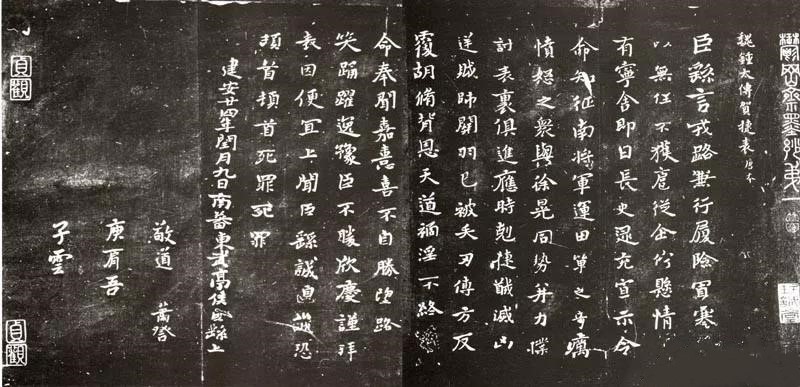 鬱岡齋墨妙第一
魏鍾太傅賀捷表 唐本
臣繇言戎路兼行履險冒寒
以無任不獲扈從企佇懸情
有寧舍即日長史逯充宣示令
命知征南將軍運田單之奇厲
憤怒之衆與徐晃同勢并力撲
討表裏俱進應時剋捷馘滅凶
逆賊帥關羽已被矢刃傅方反
覆胡脩背恩天道禍淫不終
命奉聞嘉憙喜不自勝望路
笑踊躍逸豫臣不勝欣慶謹拜
表因便宜上聞臣繇誠惶誠恐
頓首頓首死罪死罪
建安廿四年閏月九日南蕃東武亭侯臣繇上
敬道
庾肩吾
子雲
貞觀
貞觀